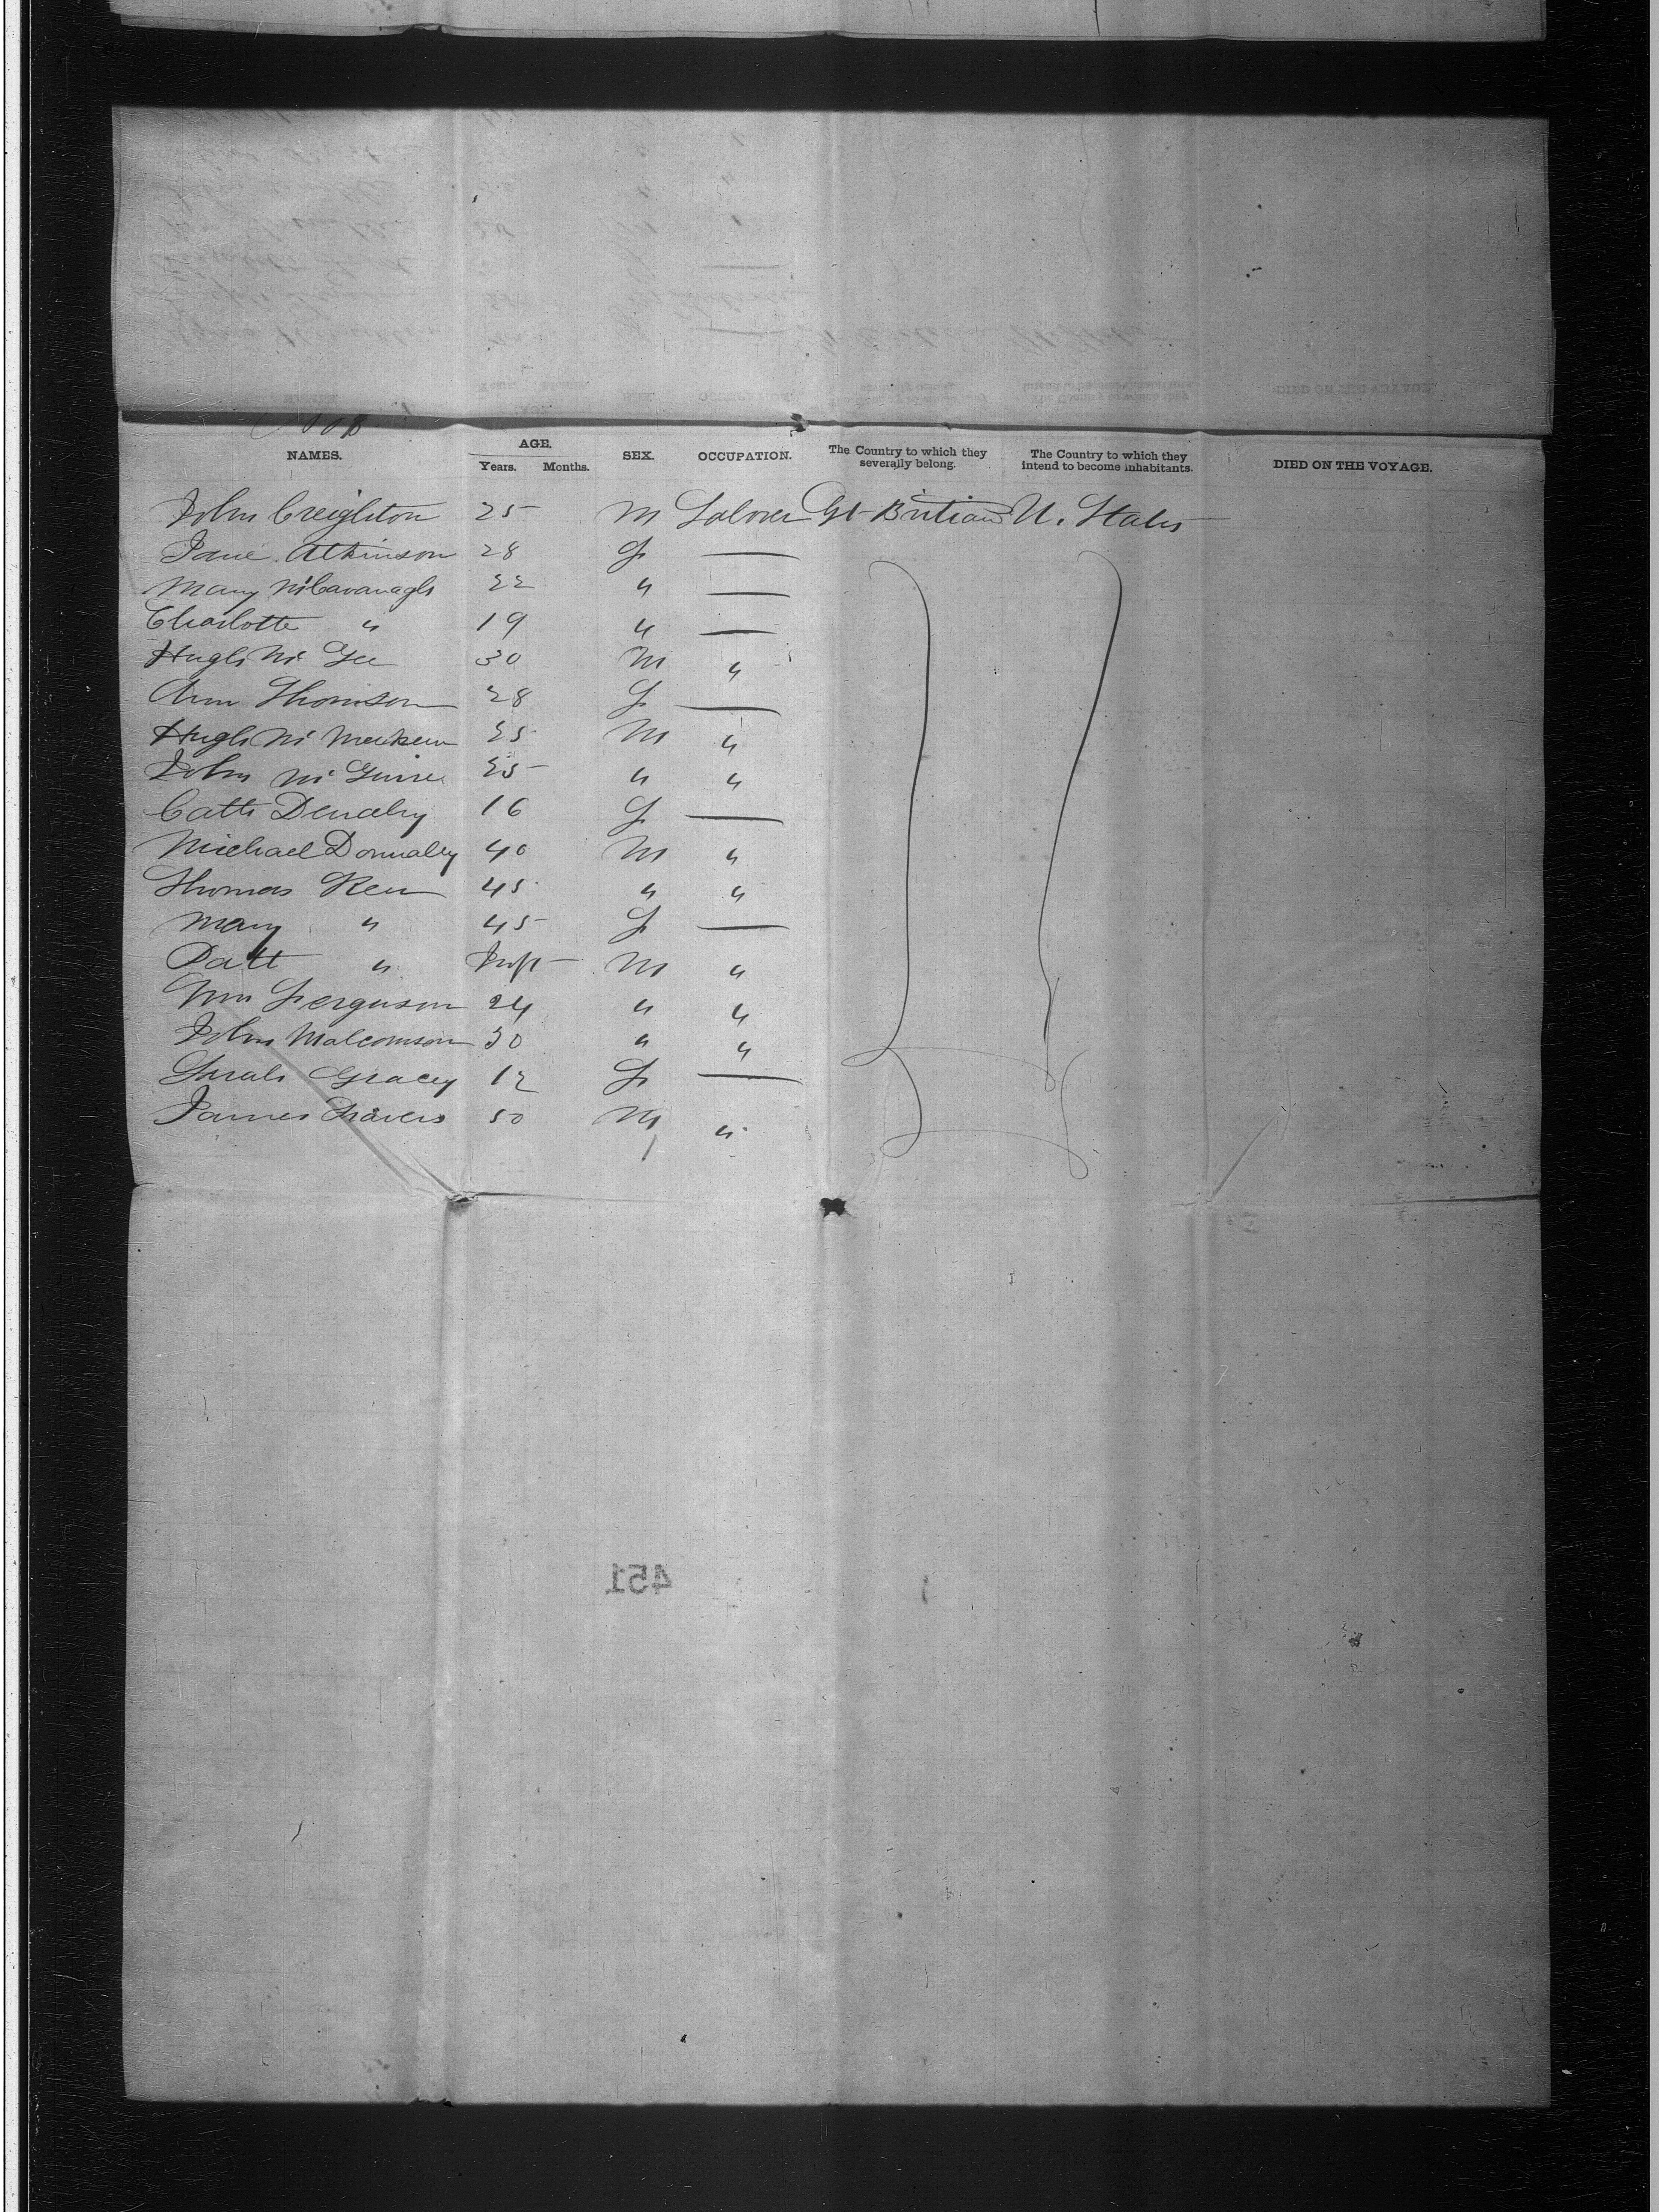 NAMES. AGE. Years. Months. SEX. OCCUPATION. The Country to which they severally belong. The Country to which they intend to become inhabitants. DIED ON THE VOYAGE.
John Creighton 25 M Laborer Gt Britian U. States
Jane Atkinson 28 F —
Mary McCavanagh 22 " —
Charlotte " 19 " —
Hugh Mc Gee 30 M "
Ann Thomson 28 F —
Hugh Mc 25 M "
John Mc Guire 25 " "
Cath Denaley 16 F —
Michael Donnaley 40 M "
Thomas 45 " "
Mary " 45 F —
Patt " Inft M "
Wm Ferguson 24 " "
John Malcomson 30 " "
Sarah Gracey 12 F —
James Travers 50 M "
451